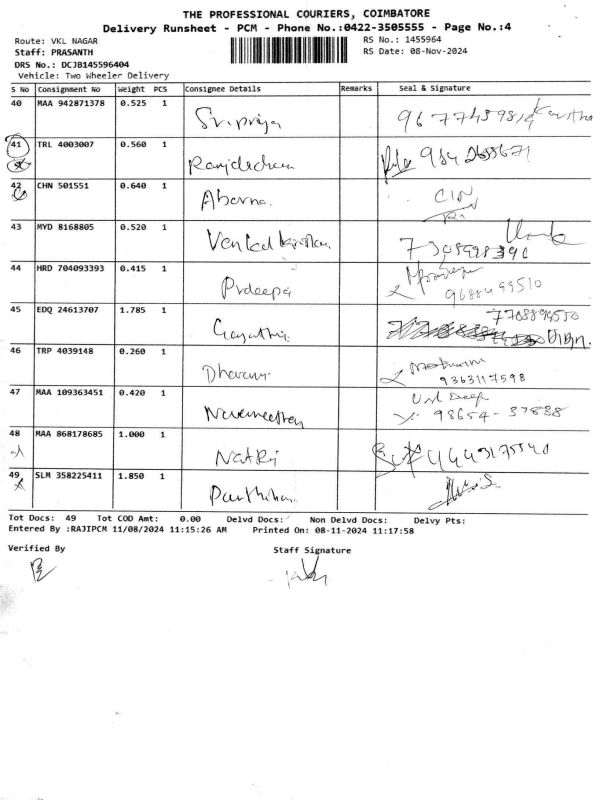 THE PROFESSIONAL COURIERS, COIMBATORE
Delivery Runsheet - PCM - Phone No.:0422-3505555 - Page No.:4
Route: VKL NAGAR RS No.: 1455964
Staff: PRASANTH RS Date: 08-Nov-2024
DRS No.: DCJB145596404
Vehicle: Two Wheeler Delivery
S No Consignment No Weight PCS Consignee Details Remarks Seal & Signature
40 MAA 942871378 0.525 1 Sripriya
41 TRL 4003007 0.560 1
42 CHN 501551 0.640 1 Abarna
43 MYD 8168805 0.520 1
44 HRD 704093393 0.415 1 Prdeepa 9688499510
45 EDQ 24613707 1.785 1 Gayathri 7708894550
46 TRP 4039148 0.260 1 9363117598
47 MAA 109363451 0.420 1 98654-37888
48 MAA 868178685 1.000 1
49 SLM 358225411 1.850 1
Tot Docs: 49 Tot COD Amt: 0.00 Delvd Docs: Non Delvd Docs: Delvy Pts:
Entered By :RAJIPCM 11/08/2024 11:15:26 AM Printed On: 08-11-2024 11:17:58
Verified By Staff Signature